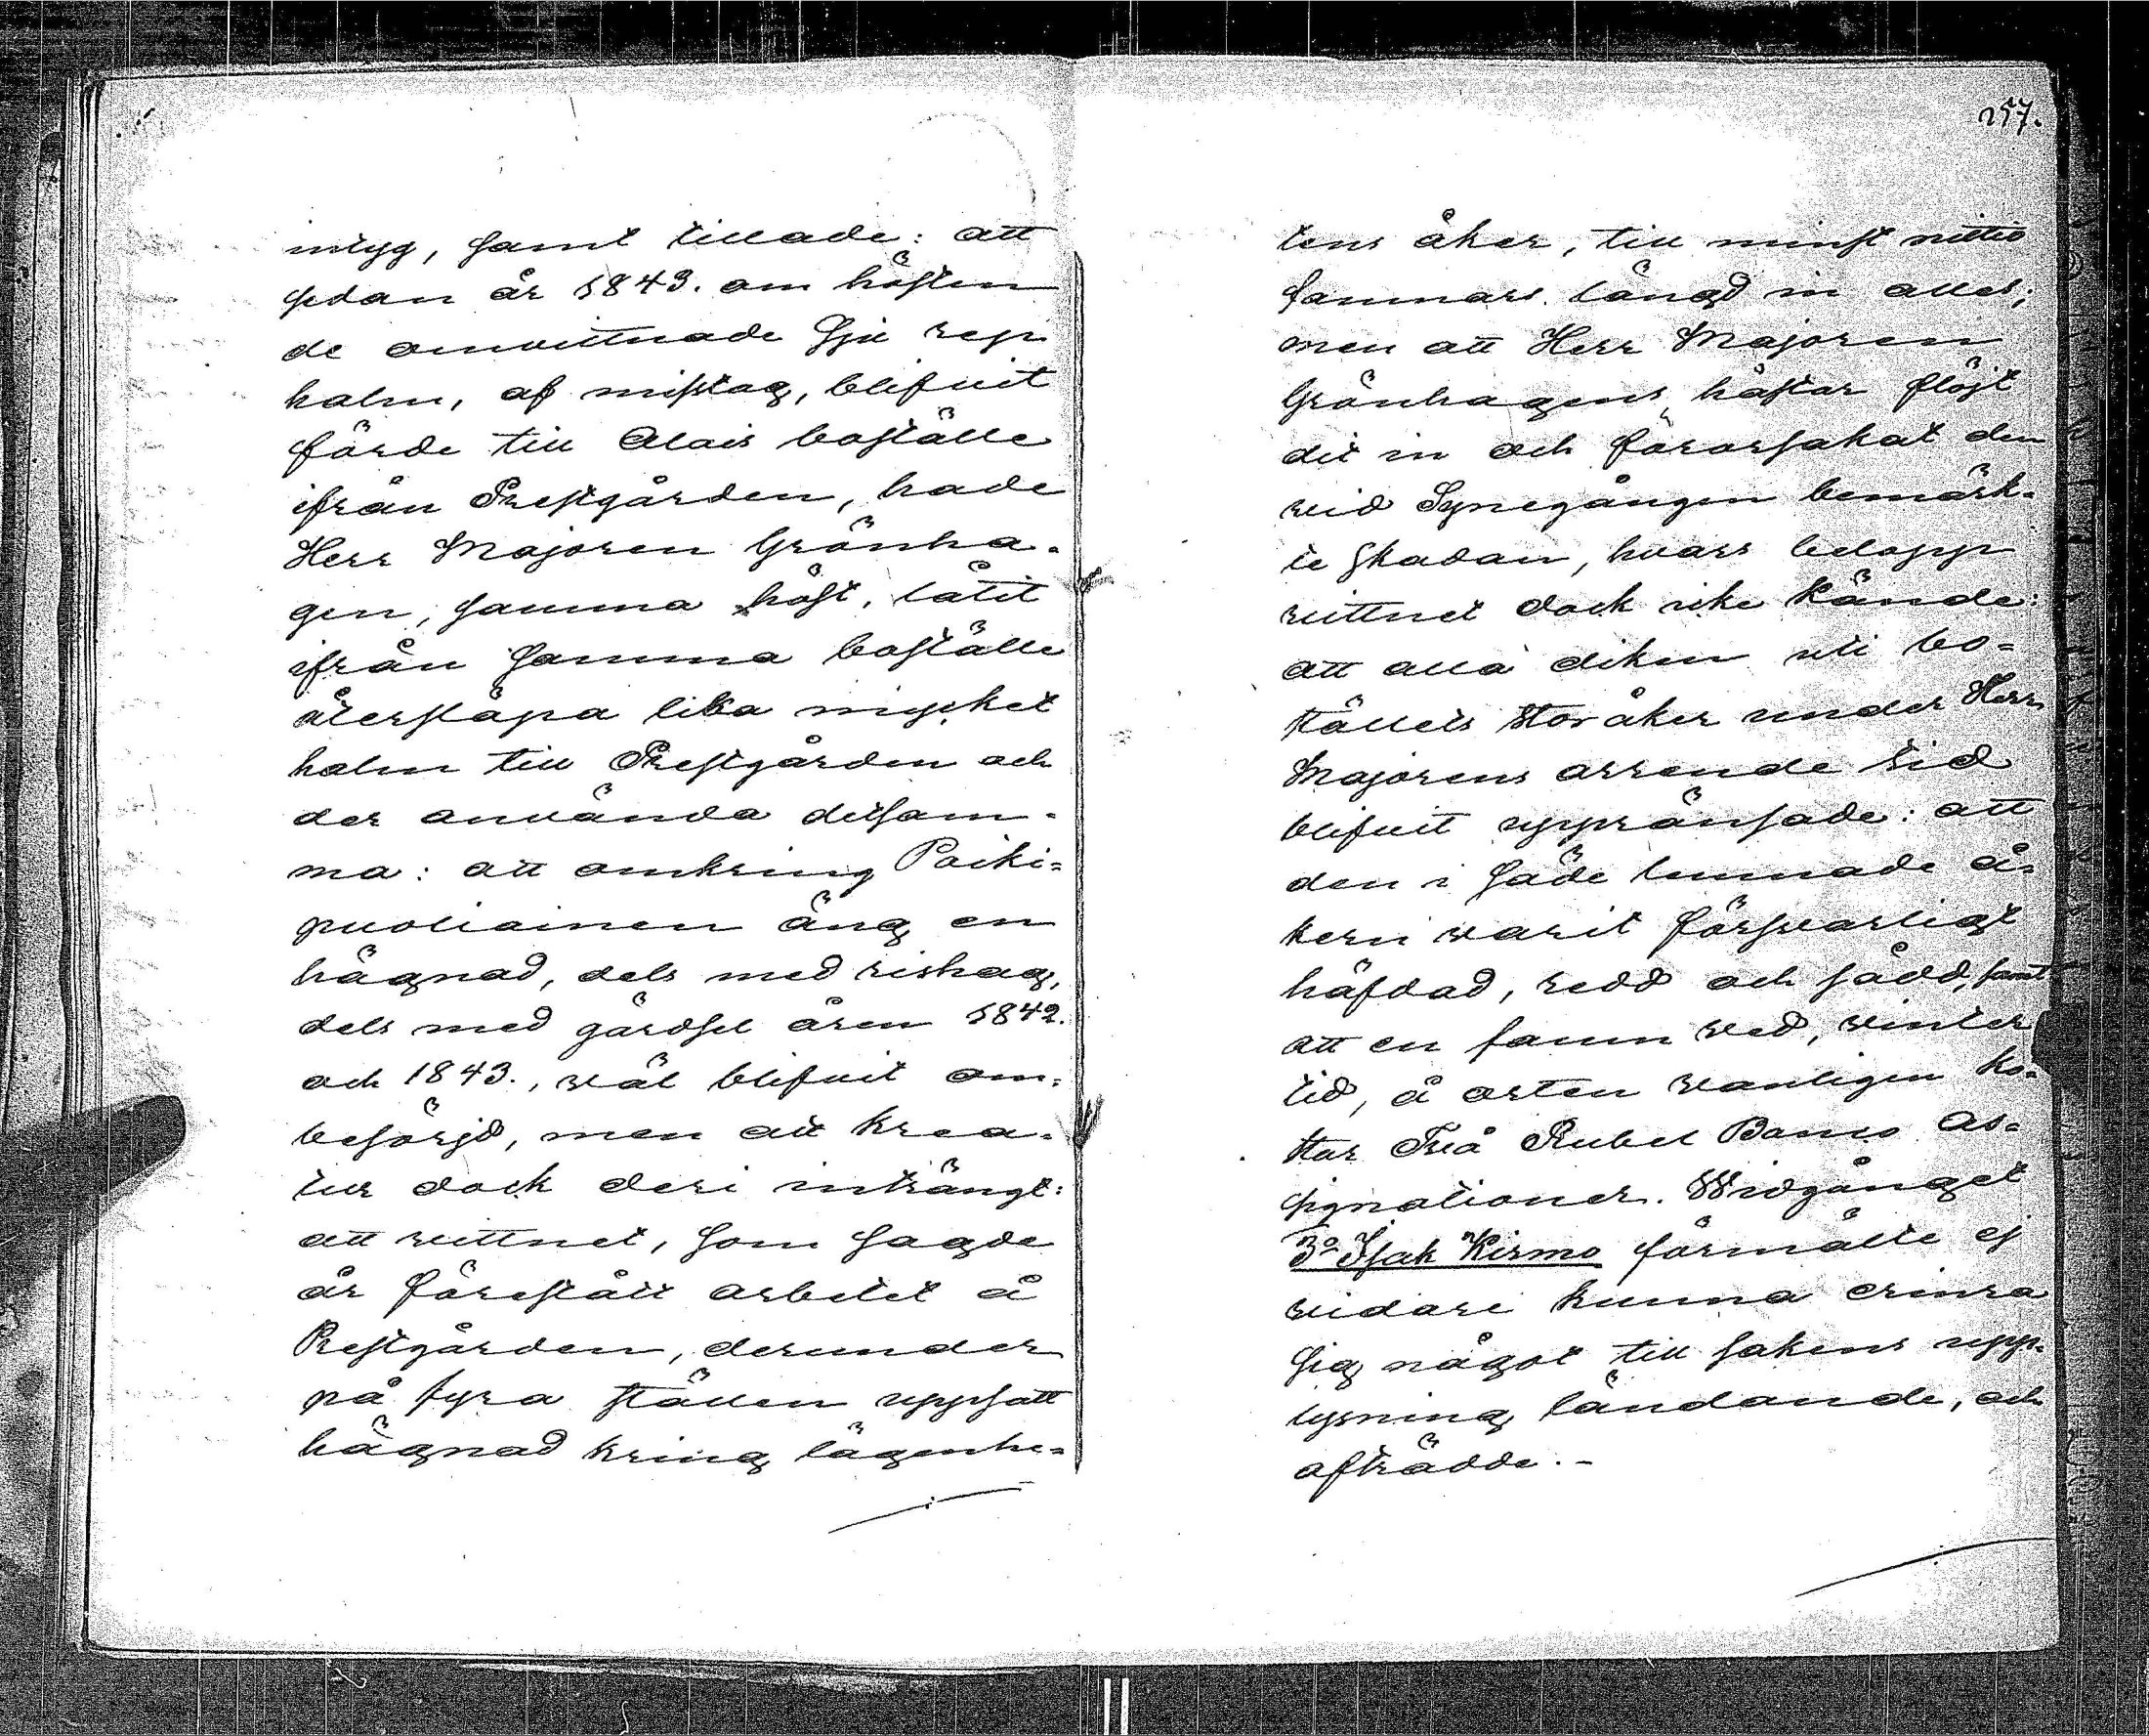 257.
intyg, samt tillade: att
sedan år 1843. om hösten
de omvittnade sju rep
halm, af misstag, blifvit
förde till Alais boställe
ifrån Prestgården, hade
Herr Majoren Grönha-
gen, samma höst, låtit
ifrån samma boställe
återsläpa lika mycket
halm till Prestgården och
der använda detsam-
ma: att omkring Paiki-
puoliainen äng en
hägnad, dels med rishag,
dels med gärdsel åren 1842.
och 1843., väl blifvit om-
besörjd, men att krea-
tur dock deri inträngt:
att vittnet, som sagde
år förestått arbetet å
Prestgården, derunder
på fyra ställen uppsatt
hägnad kring lägenhe-
tens åker, till minst nittio
famnars längd in alles;
men att Herr Majoren
Grönhagens hästar slöjt
dit in och förorsakat den
vid Synegången bemärk-
te skadan, hvars belopp
vittnet dock icke kände:
att alla diken uti bo-
ställets storåker under Herr
Majorens arrende tid
blifvit uppränsade: att
den i säde lemnade å-
kern varit försvarligt
häfdad, redd och sådd, samt
att en famn ved, winter
tid, å orten vanligen ko-
star Två Rubel Banco As-
signationer. Widgånget
3o Isak Kirmo förmälte ej
vidare kunna erinra
sig något till sakens upp-
lysning ländande, och
afträdde.-